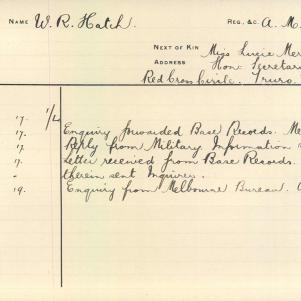 NAME W. R. Hatch. REG. &C. A. M.
NEXT OF KIN Miss Lucie Mer
ADDRESS Hon. Secretar
Red Cross Circle. Truro.
17. 1/4
17. Enquiry forwarded Base Records. Me
17. Reply from Military Information
17. Letter received from Base Records.
" therein sent Inquirer.
19. Enquiry from Melbourne Bureau.